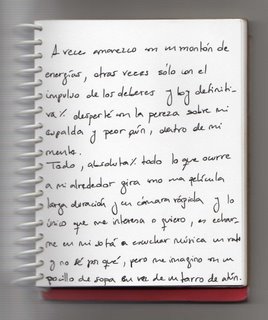 A veces amanezco con un montón de
energías, otras veces sólo con el
impulso de los deberes y hoy definiti-
va% desperté con la pereza sobre mi
espalda y peor aún, dentro de mi
mente.
Todo, absoluta% todo lo que ocurre
a mi alrededor gira una película
larga duración y un cámara rápida y lo
único que me interesa o quiero, es echar-
me en mi sofá a escuchar música un rato
y no sé por qué, pero me imagino un
pocillo de sopa en vez de un tarro de atún.